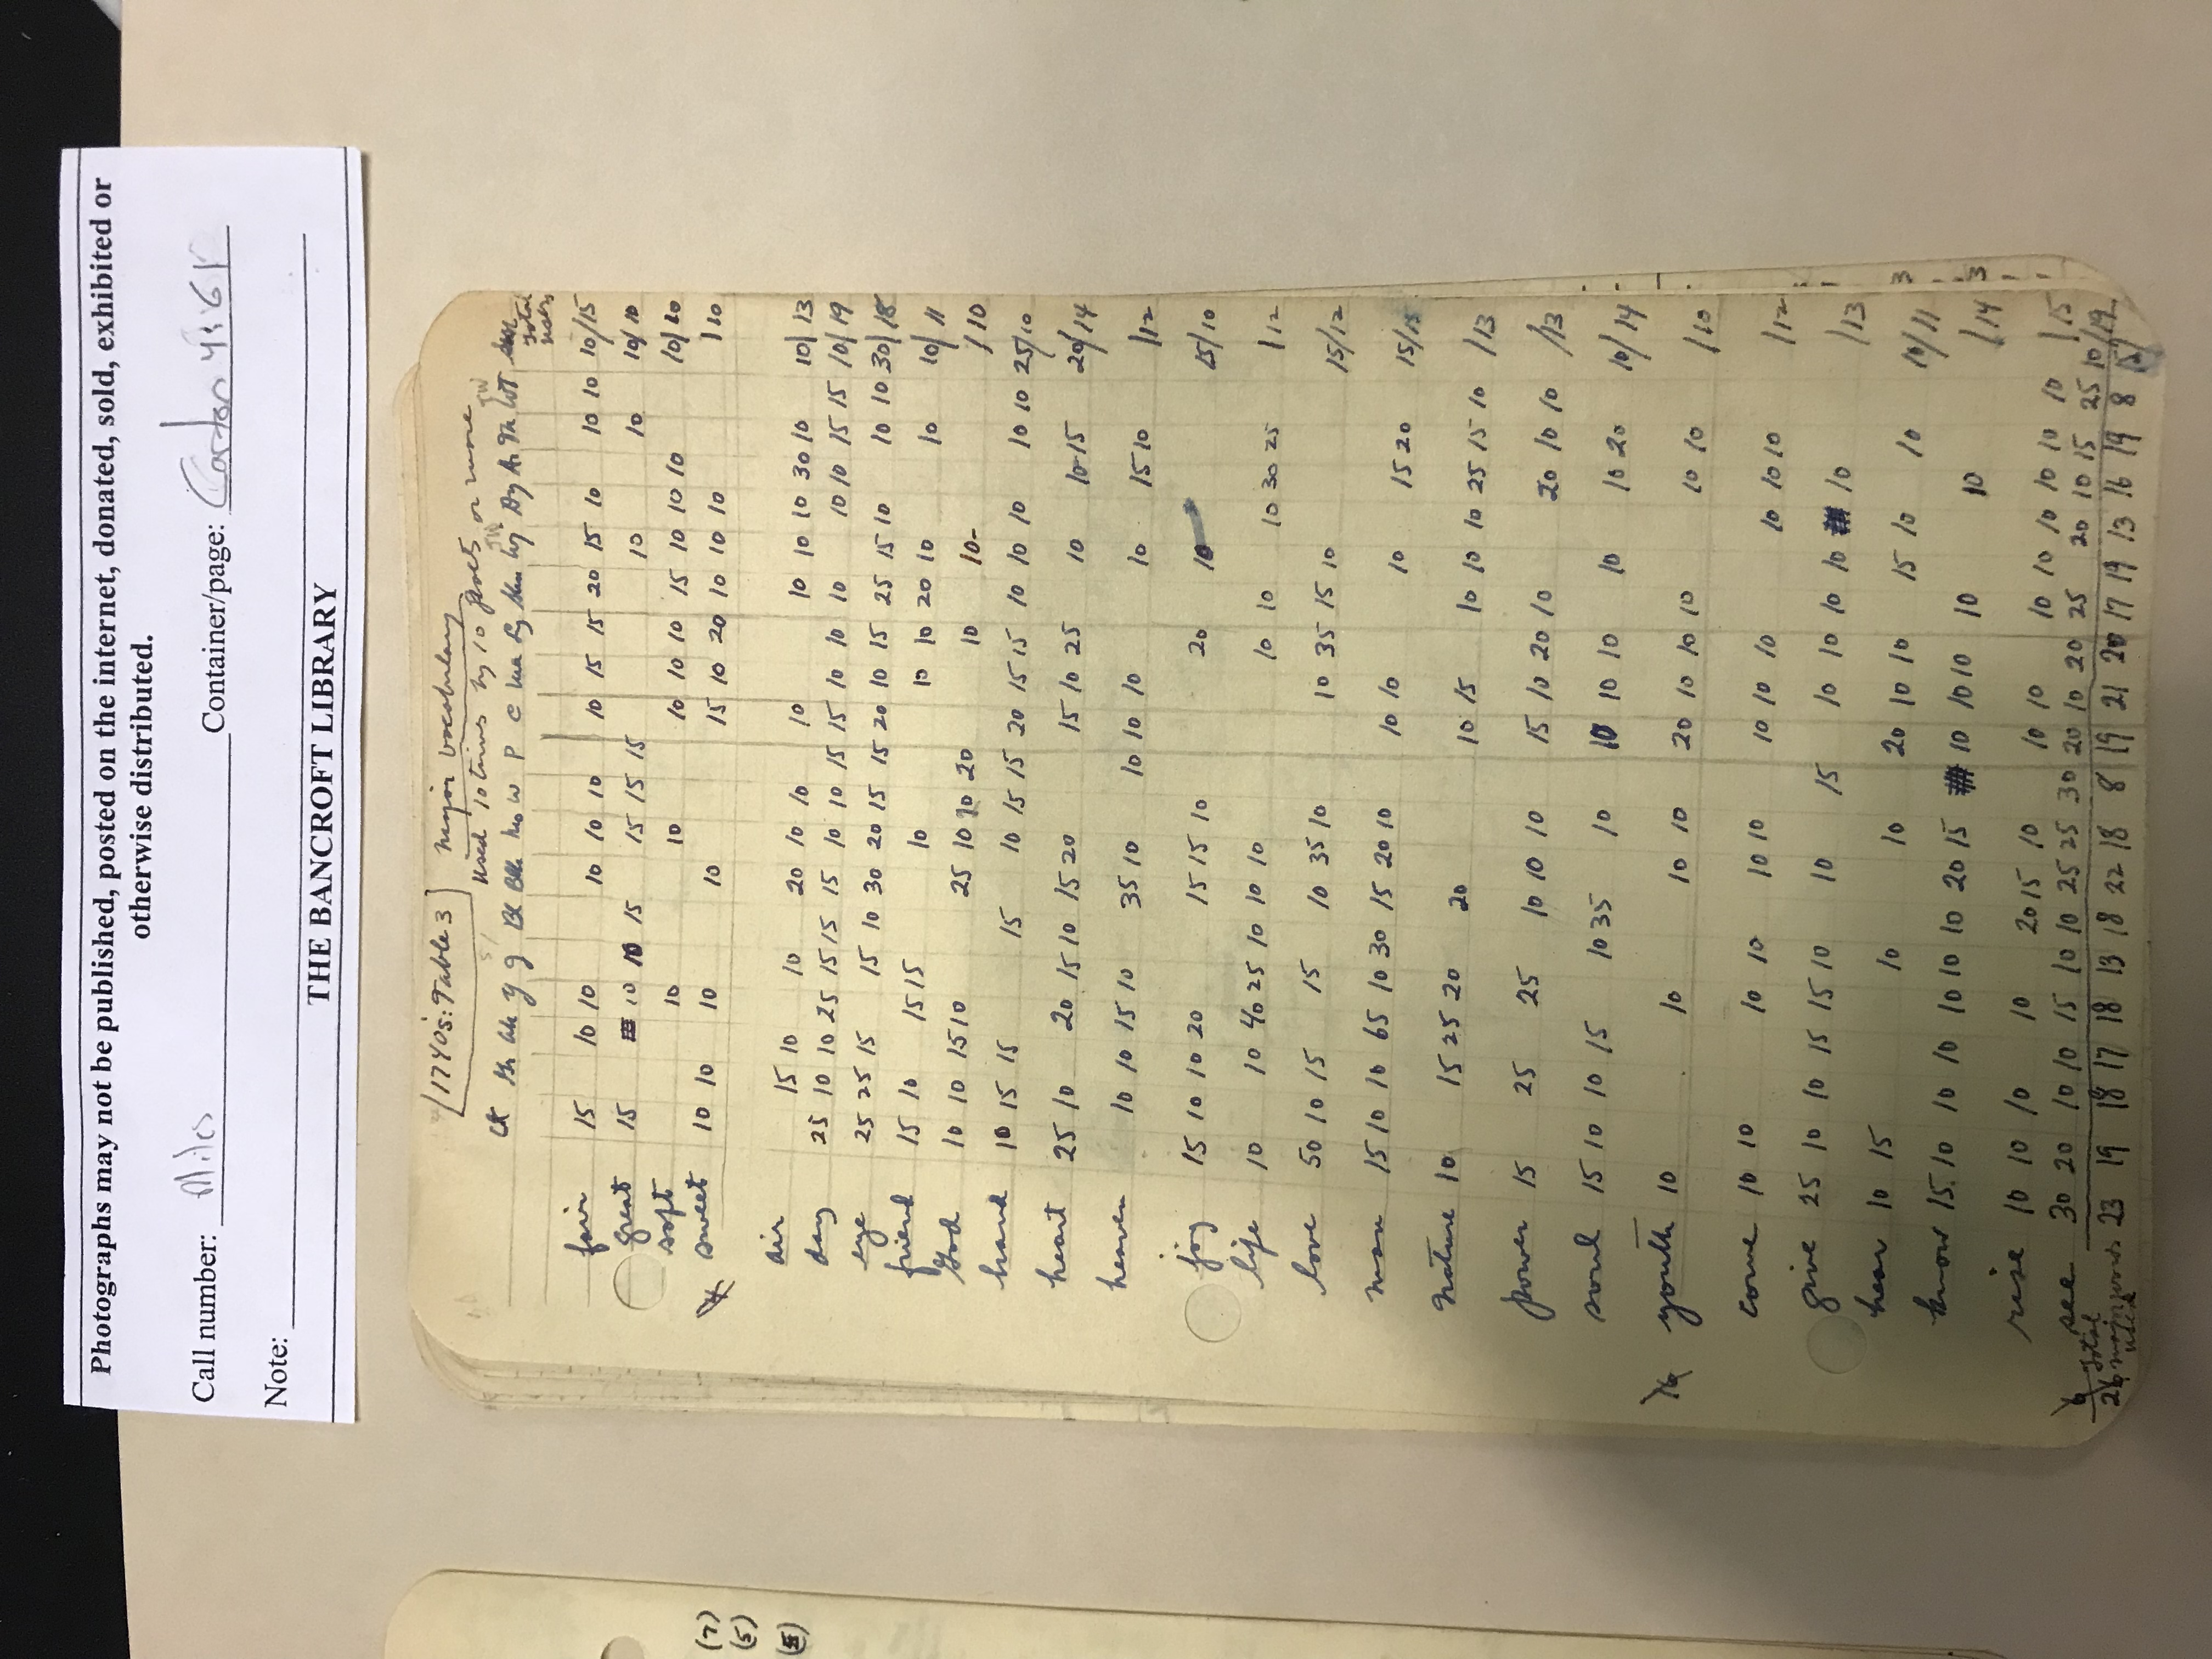 Photographs may not be published, posted on the internet, donated, sold, exhibited or
otherwise distributed.
Call number: Miles Container/page: Carton 4:61
Note:
THE BANCROFT LIBRARY
[1740s: Table 3] Major Vocabulary
Used 10 times by 10 poets or more
Bl P C Total users
fair 15 10 10 10 10 10 10 15 15 20 15 10 10 10 10/15
great 15 10 10 15 15 15 15 10 10 10/10
soft 10 10 10 10 10 15 10 10 10 10/10
sweet 10 10 10 10 15 10 20 10 10 10 /10
air 15 10 10 20 10 10 10 10 10 10 30 10 10/13
day 25 10 10 25 15 15 15 10 10 15 15 10 10 10 10 10 15 15 10/19
eye 25 25 15 15 10 30 20 15 15 20 10 15 25 15 10 10 10 30/18
friend 15 10 15 15 10 10 10 20 10 10 10/11
God 10 10 15 10 25 10 10 20 10 10- /10
hand 10 15 15 15 10 15 15 20 15 15 10 10 10 10 10 25/10
heart 25 10 20 15 10 15 20 15 10 25 10 10-15 20/14
heaven 10 10 15 10 35 10 10 10 10 10 15 10 /12
joy 15 10 10 20 15 15 10 20 10 15/10
life 10 10 40 25 10 10 10 10 10 10 30 25 /12
love 50 10 15 15 10 35 10 10 35 15 10 15/12
man 15 10 10 65 10 30 15 20 10 10 10 10 15 20 15/15
nature 10 15 25 20 20 10 15 10 10 10 25 15 10 /13
power 15 25 25 10 10 10 15 10 20 10 20 10 10 /13
soul 15 10 10 15 10 35 10 10 10 10 10 10 20 10/14
16 youth 10 10 10 10 20 10 10 10 10 10 /10
come 10 10 10 10 10 10 10 10 10 10 10 10 /12
give 25 10 10 15 15 10 10 15 10 10 10 10 10 /13
hear 10 15 10 10 20 10 10 15 10 10 10/11
know 15. 10 10 10 10 10 10 20 15 10 10 10 10 10 /14
rise 10 10 10 10 20 15 10 10 10 10 10 10 10 10 10 /15
6 see 30 20 10 10 15 10 10 25 25 30 20 10 20 25 20 10 15 25 10/19
26 Total major words used 23 19 18 17 18 13 18 22 18 8 19 21 20 17 19 13 16 19 8 15/
(7)
(5)
(5)
3
3